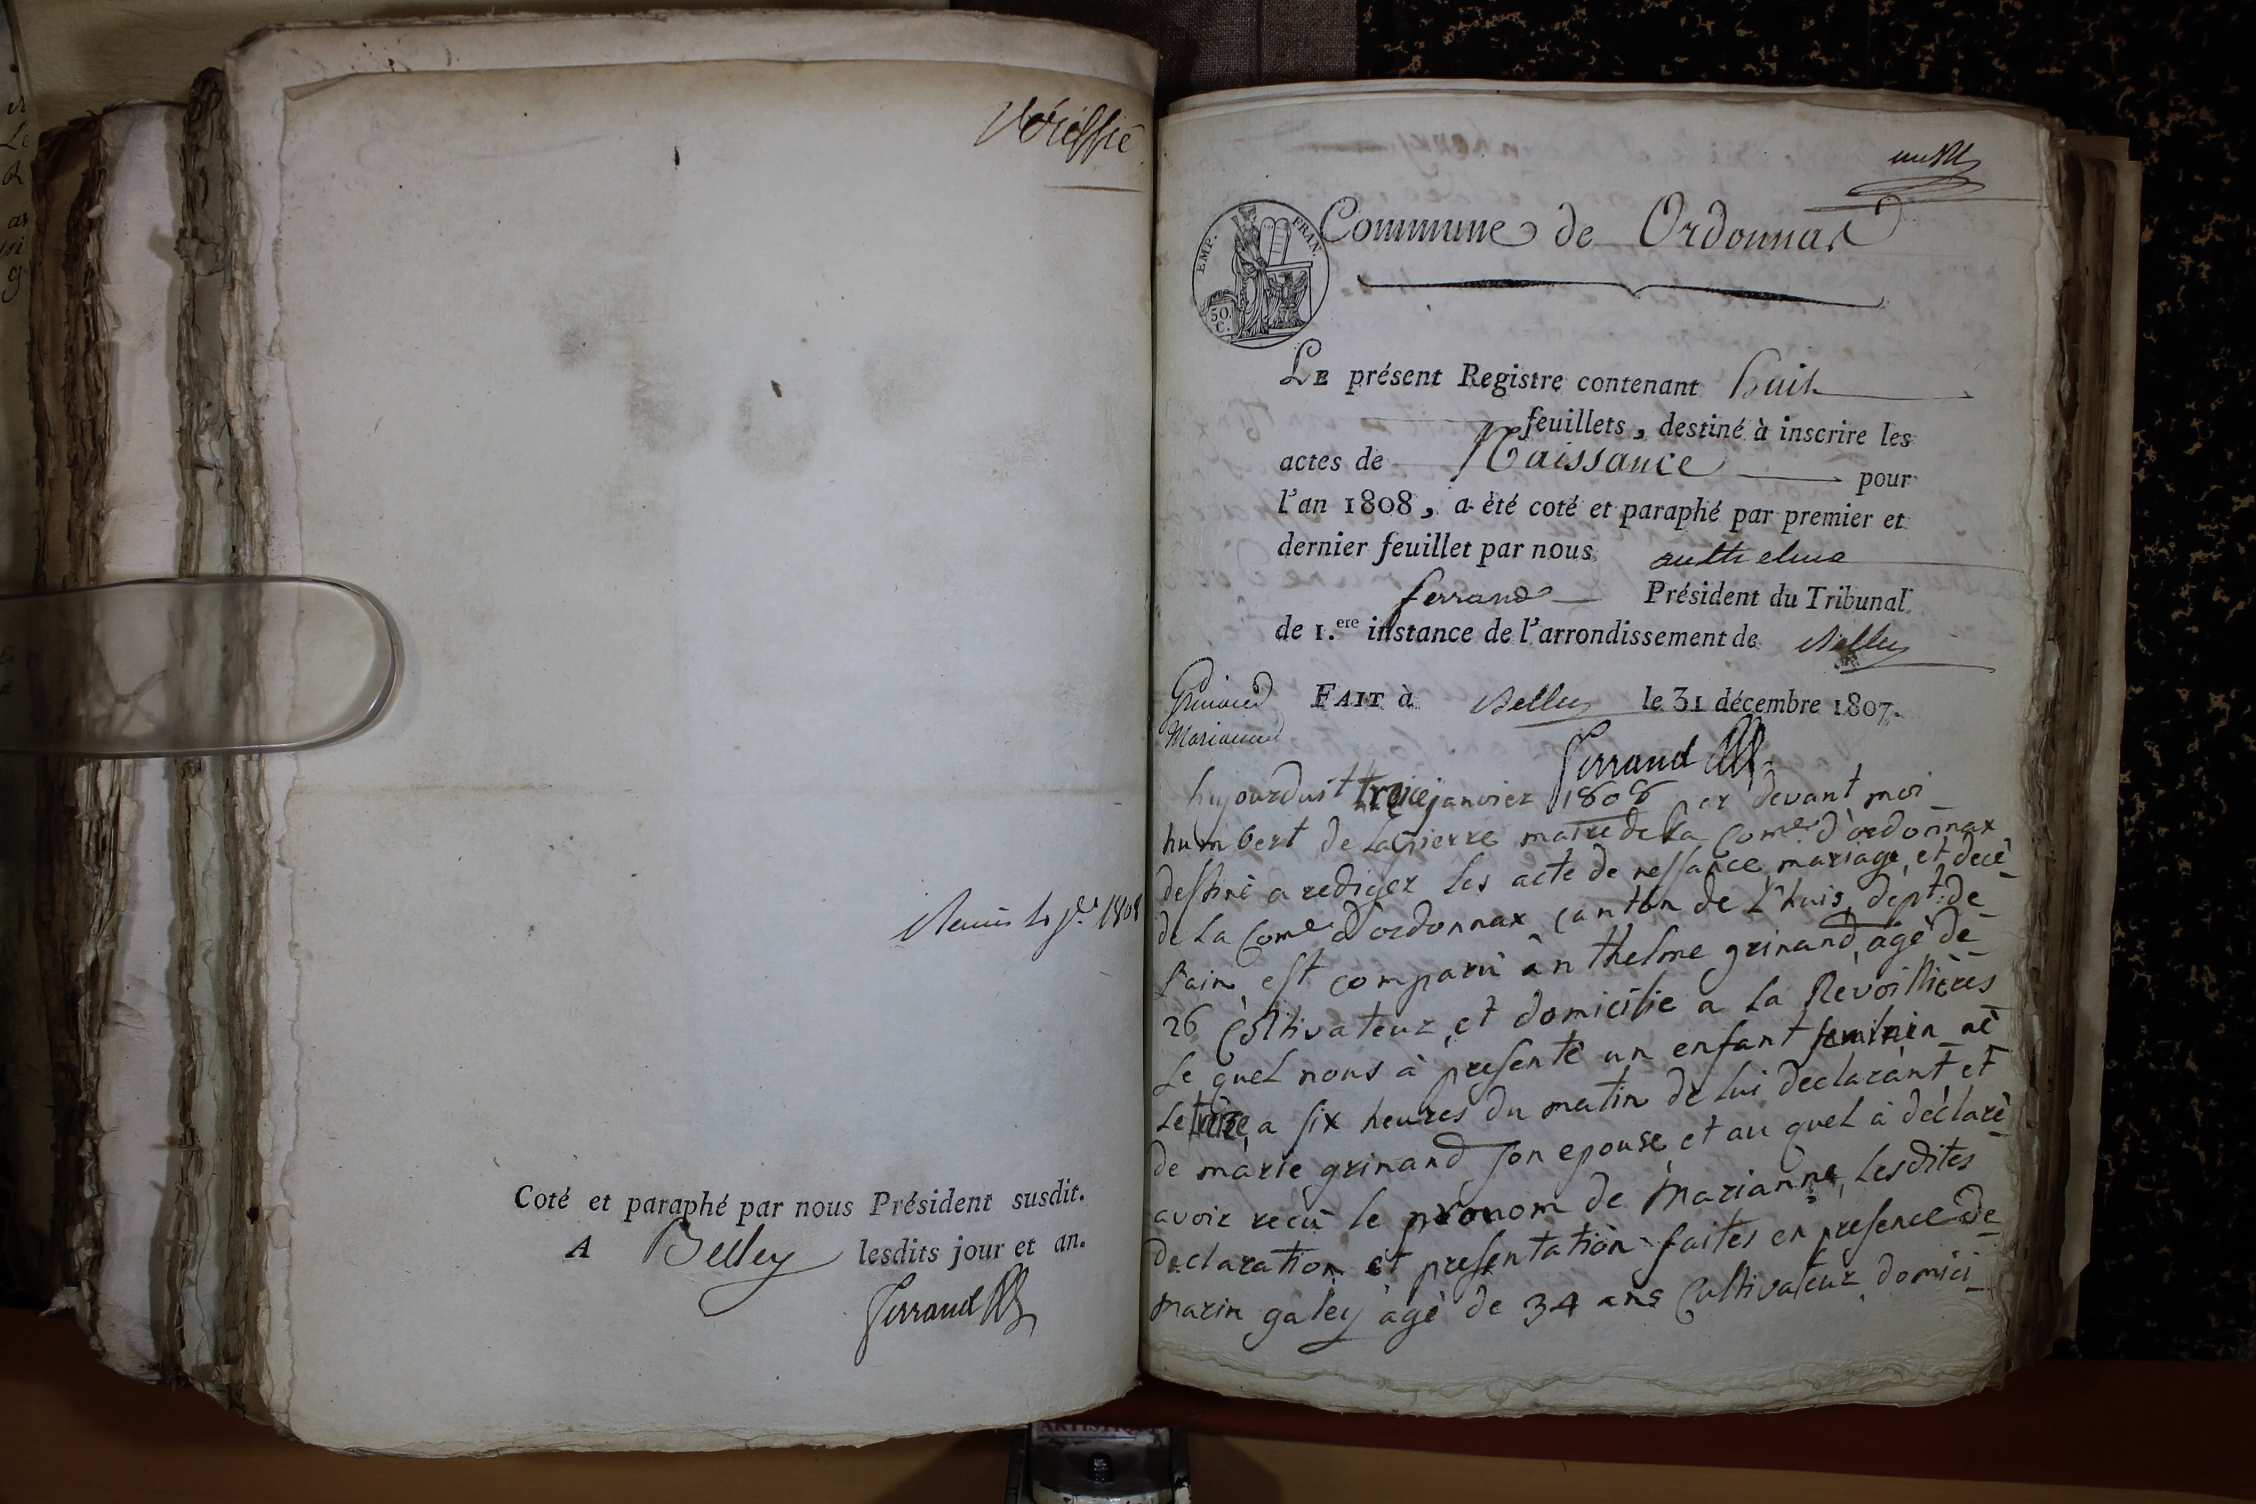 Vériffié
Coté et paraphé par nous Président susdit.
A Belley lesdits jour et an.
Ferrand
Commune de Ordonnas
EMP. FRAN.
50.
C.
LE présent Registre contenant huit
feuillets, destiné à inscrire les
actes de Naissance pour
l'an 1808, a été coté et paraphé par premier et
dernier feuillet par nous anthelme
ferrand Président du Tribunal
de 1.ere instance de l'arrondissement de Belley
FAIT à Belley le 31 décembre 1807.
Ferrand
Grinand
Marianne
hujourduit treize janvier 1808 par devant moi
humbert de Lapierre maire de La Come d'ordonnax
destiné a rediger les acte de nessance mariage et decè
de La Come d'ordonnax canton de L'huis, dept. de
L'ain est comparu anthelme grinand, agé de
26 Coltivateur et domicilie a La Revoillières
Le quel nous à presenté un enfant feminin né
Le treize a six heures du matin de Lui declarant et
de marie grinand son epouse et au quel à déclaré
avoir reçu le pronom de Marianne, Lesdites
declaration et presentation faites en presence de
marin galey agé de 34 ans Cultivateur domici